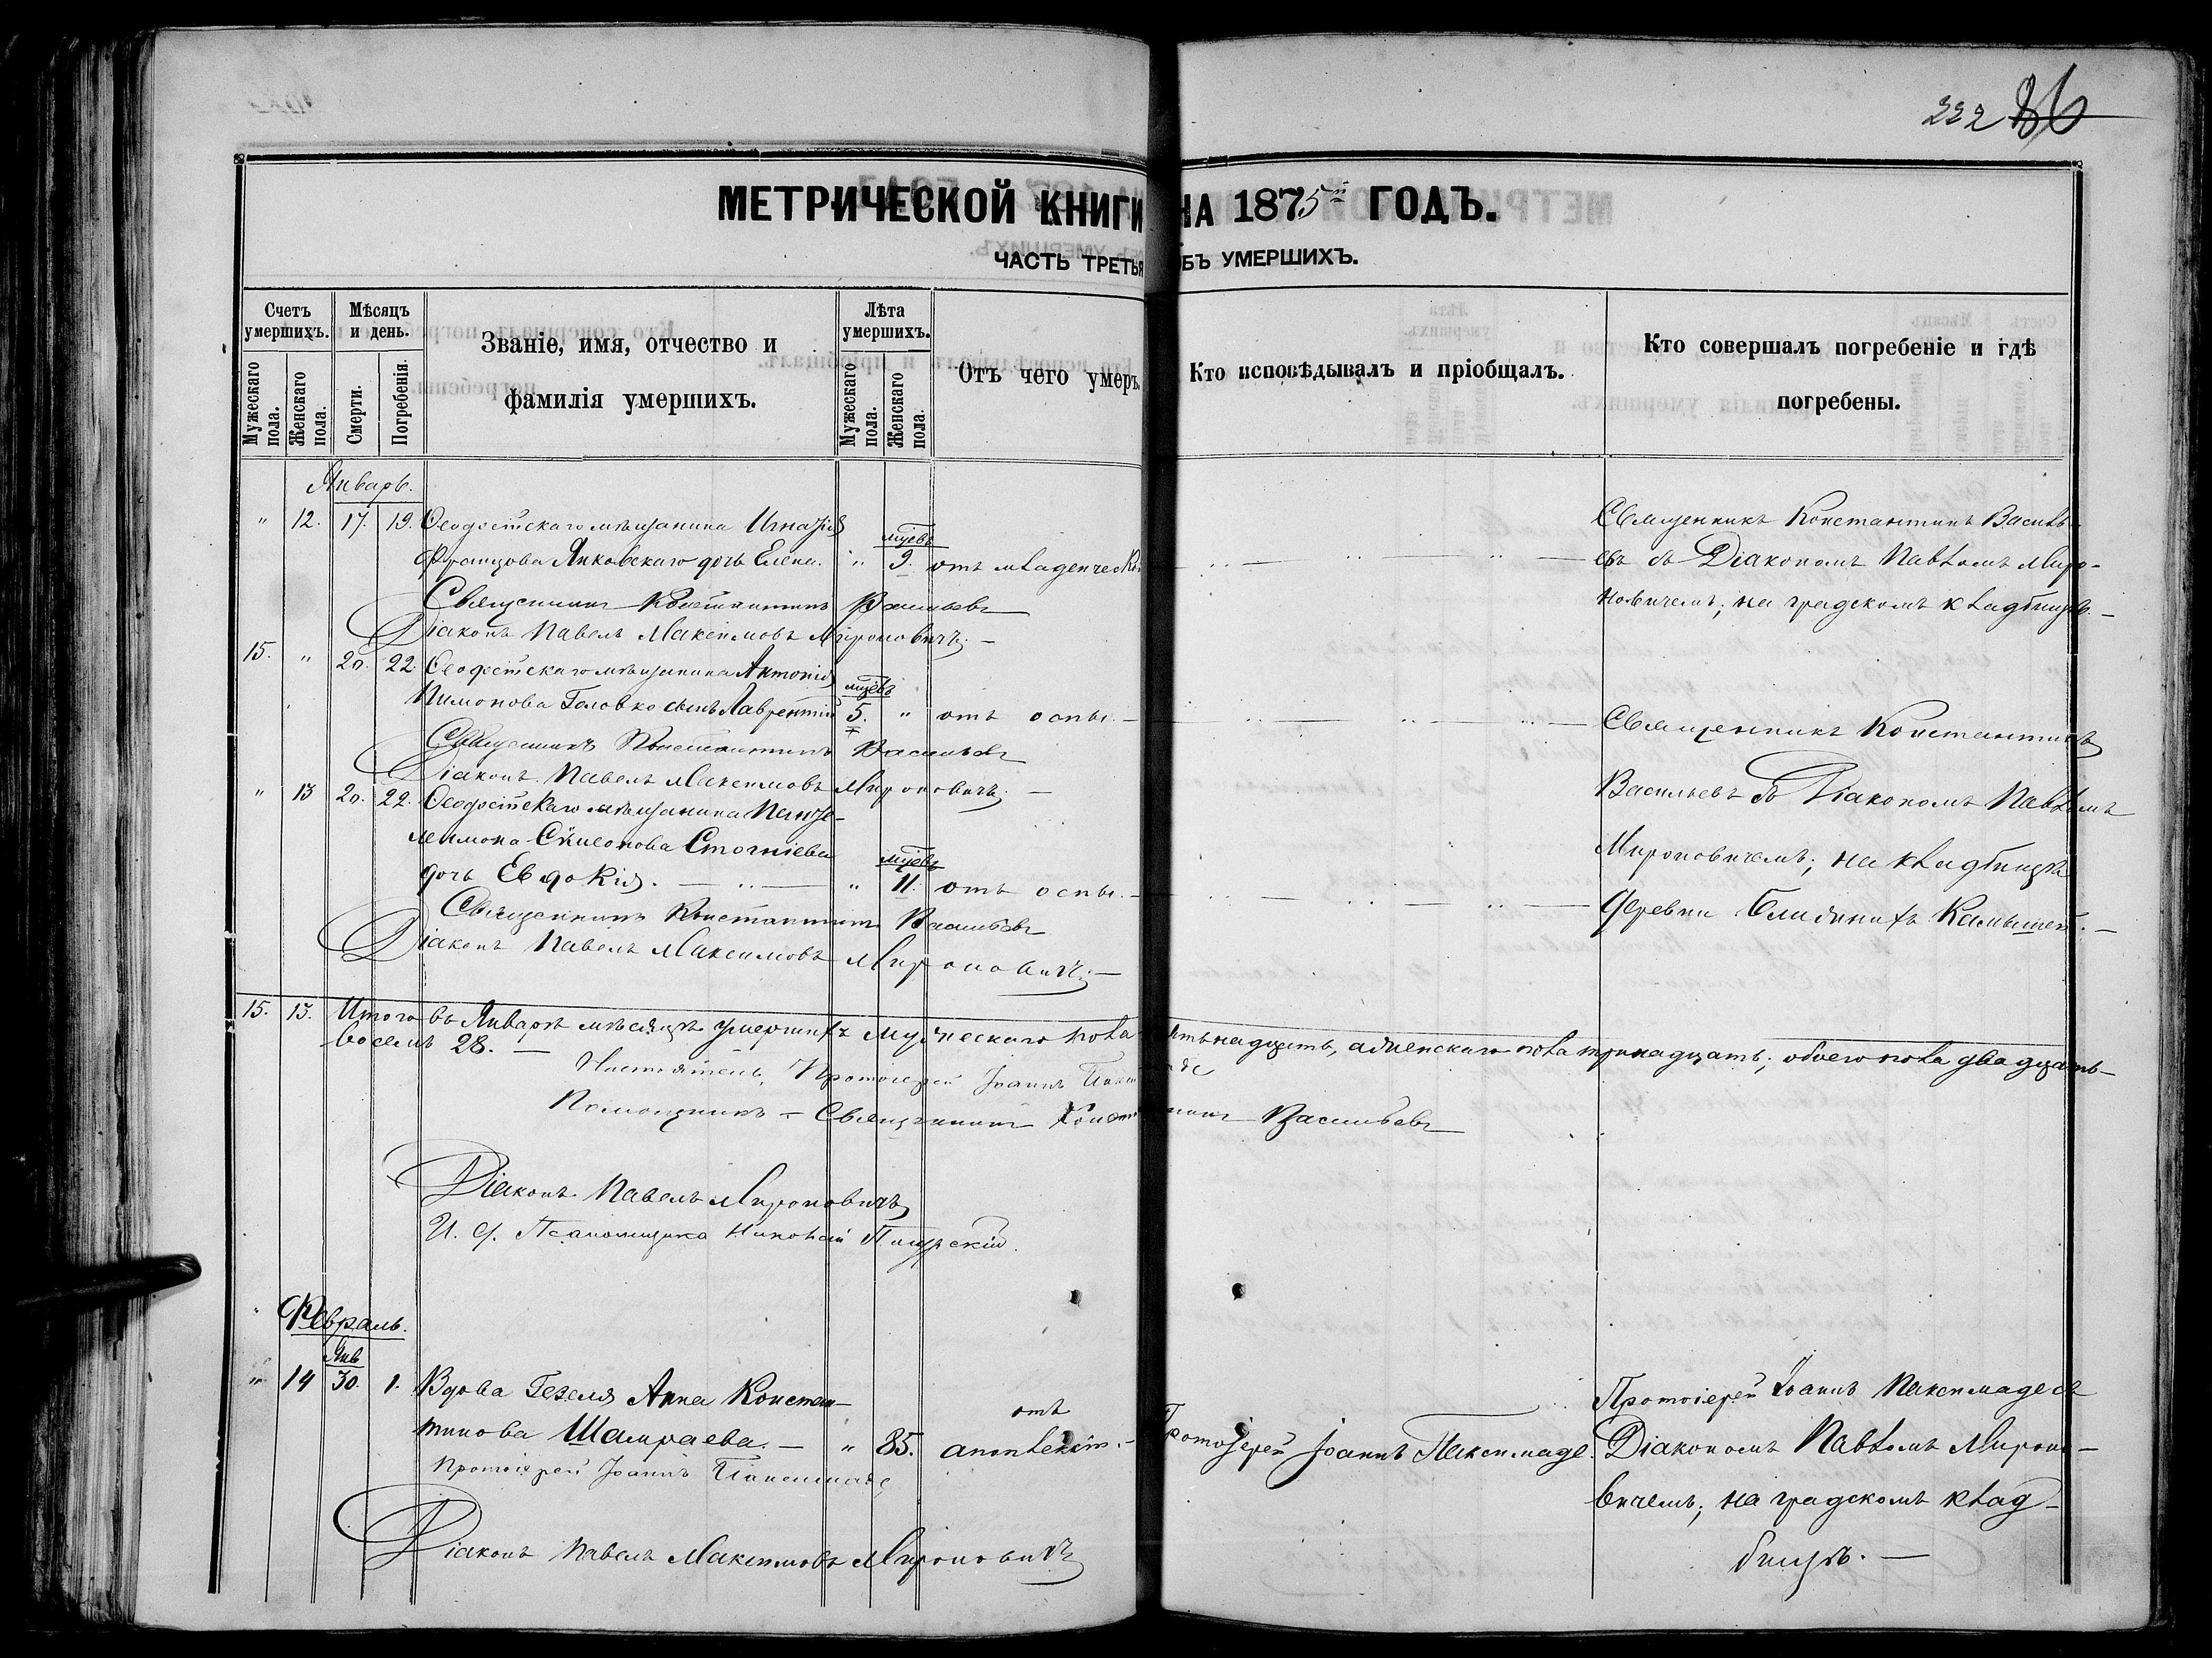 222 86
МЕТРИЧЕСКОЙ КНИГИ НА 1875й ГОДЪ.
ЧАСТЬ ТРЕТЬЯ БЪ УМЕРШИХЪ.
Счетъ умершихъ.
Мужескаго пола.
Женскаго пола.
Мѣсяцъ и день.
Смерти.
Погребенія.
Званіе, имя, отчество и
фамилія умершихъ.
Лѣта умершихъ.
Мужескаго пола.
Женскаго пола.
Отъ чего умеръ.
Кто исповѣдывалъ и пріобщалъ.
Кто совершалъ погребеніе и гдѣ
погребены.
Январь.
" 12. 17. 19. Ѳеодосійскаго мѣщанина Игнатія
Францова Янковскаго дочь Елена. " 9. отъ младенческ
Священникъ Константинъ Васильевъ
Діаконъ Павелъ Максимовъ Мироновичъ. —
Священникъ Константинъ Василь-
евъ съ Діакономъ Павломъ Миро-
новичемъ; на градскомъ кладбищѣ. —
15. " 20. 22. Ѳеодосійскаго мѣщанина Антонія
Пимонова Головко сынъ Лаврентій 5. " отъ оспы. —
Священникъ Константинъ Васильевъ
Діаконъ Павелъ Максимовъ Мироновичъ. —
Священникъ Константинъ
Васильевъ съ Діакономъ Павломъ
Мироновичемъ; на кладбищѣ
деревни Ближнихъ Камышей. —
" 13 20. 22. Ѳеодосійскаго мѣщанина Панте-
леимона Стогніева
дочь Евдокія. — " 11. отъ оспы. —
Священникъ Константинъ Васильевъ
Діаконъ Павелъ Максимовъ Мироновичъ. —
15. 13. Итого въ Январѣ мѣсяцѣ умершихъ мужескаго пола ятьнадцать, а женскаго пола тринадцать; обоего пола двадцать-
восемь 28. —
Настоятель, Протоіерей Іоаннъ
Помощникъ — Священникъ Конст нинъ Васильевъ
Діаконъ Павелъ Мироновичъ
И. д. Псаломщика Николай
Февраль.
Янв
" 14 30. 1. Вдова Гезеля Анна Констан-
тинова Шамраева. — " 85. отъ апоплексіи. —
Протоіерей Іоаннъ Паксимаде
Діаконъ Павелъ Максимовъ Мироновичъ
ротоіерей Іоаннъ Паксимаде.
Протоіерей Іоаннъ Паксимаде съ
Діакономъ Павломъ Мироно-
вичемъ; на градскомъ клад-
бищѣ. —